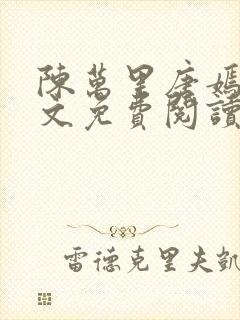 陳萬里唐嫣
文免費閱讀
雷德克里夫凱